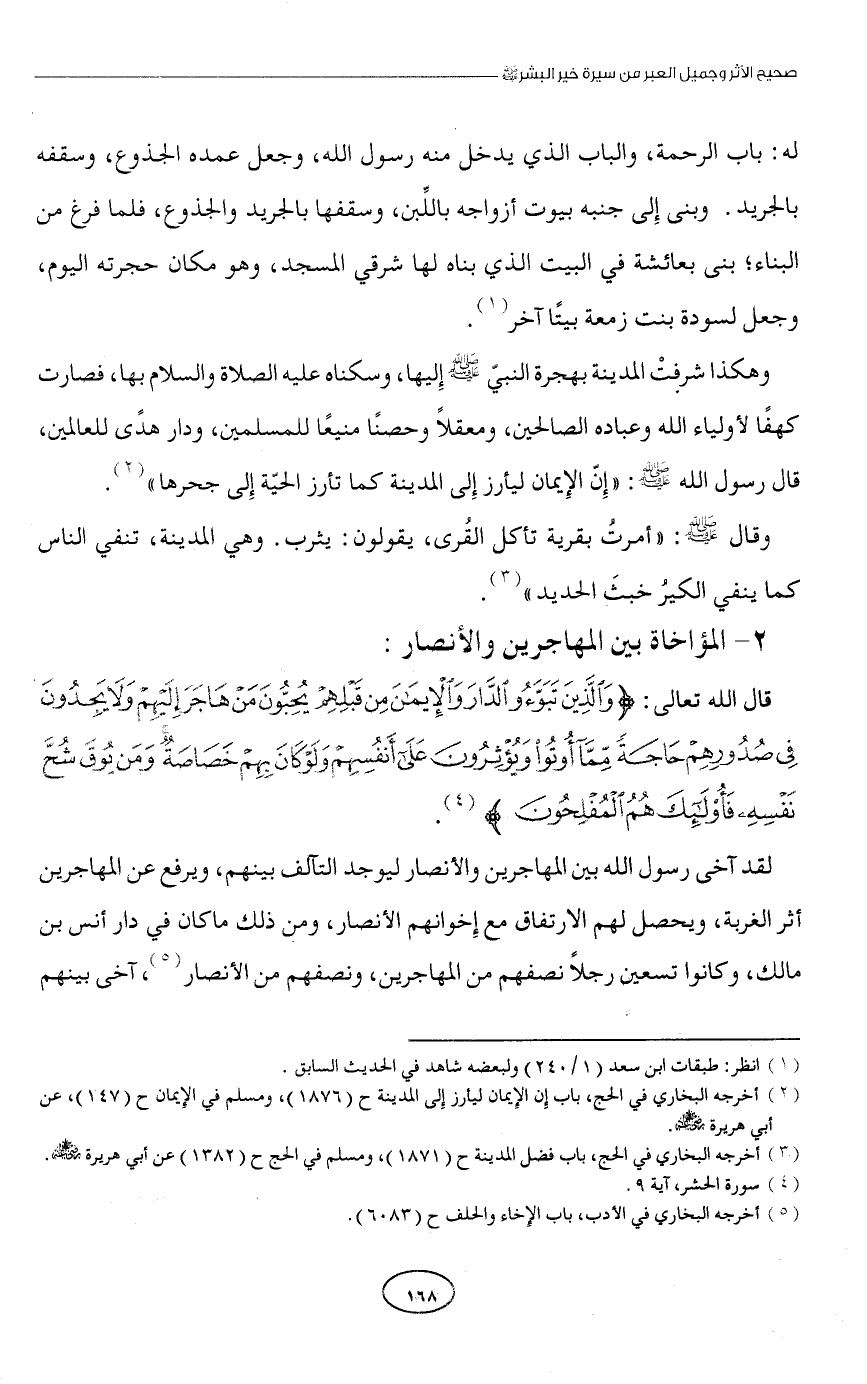 صحيح الأثر وجميل العبر من سيرة خير البشر ﷺ
له: باب الرحمة، والباب الذي يدخل منه رسول الله، وجعل عمده الجذوع، وسقفه
بالجريد. وبنى إلى جنبه بيوت أزواجه باللَّبِن، وسقفها بالجريد والجذوع، فلما فرغ من
البناء؛ بنى بعائشة في البيت الذي بناه لها شرقي المسجد، وهو مكان حجرته اليوم،
وجعل لسودة بنت زمعة بيتًا آخر(١).
وهكذا شرفتْ المدينة بهجرة النبيّ ﷺ إليها، وسكناه عليه الصلاة والسلام بها، فصارت
كهفًا لأولياء الله وعباده الصالحين، ومعقلاً وحصنًا منيعًا للمسلمين، ودار هدًى للعالمين،
قال رسول الله ﷺ: «إنّ الإيمان ليأرز إلى المدينة كما تأرز الحيّة إلى جحرها»(٢).
وقال ﷺ: «أمرتُ بقرية تأكل القُرى، يقولون: يثرب. وهي المدينة، تنفي الناس
كما ينفي الكيرُ خبثَ الحديد»(٣).
٢- المؤاخاة بين المهاجرين والأنصار:
قال الله تعالى: ﴿وَالَّذِينَ تَبَوَّءُو الدَّارَ وَالْإِيمَٰنَ مِن قَبْلِهِمْ يُحِبُّونَ مَنْ هَاجَرَ إِلَيْهِمْ وَلَا يَجِدُونَ
فِي صُدُورِهِمْ حَاجَةً مِّمَّا أُوتُوا وَيُؤْثِرُونَ عَلَىٰ أَنفُسِهِمْ وَلَوْ كَانَ بِهِمْ خَصَاصَةٌ ۚ وَمَن يُوقَ شُحَّ
نَفْسِهِ فَأُولَٰئِكَ هُمُ الْمُفْلِحُونَ﴾(٤).
لقد آخى رسول الله بين المهاجرين والأنصار ليوجد التآلف بينهم، ويرفع عن المهاجرين
أثر الغربة، ويحصل لهم الارتفاق مع إخوانهم الأنصار، ومن ذلك ماكان في دار أنس بن
مالك، وكانوا تسعين رجلاً نصفهم من المهاجرين، ونصفهم من الأنصار(٥)، آخى بينهم
(١) انظر: طبقات ابن سعد (١/٢٤٠) ولبعضه شاهد في الحديث السابق.
(٢) أخرجه البخاري في الحج، باب إن الإيمان ليأرز إلى المدينة ح (١٨٧٦)، ومسلم في الإيمان ح (١٤٧)، عن
أبي هريرة رضي الله عنه.
(٣) أخرجه البخاري في الحج، باب فضل المدينة ح (١٨٧١)، ومسلم في الحج ح (١٣٨٢) عن أبي هريرة رضي الله عنه.
(٤) سورة الحشر، آية ٩.
(٥) أخرجه البخاري في الأدب، باب الإخاء والحلف ح (٦٠٨٣).
١٦٨